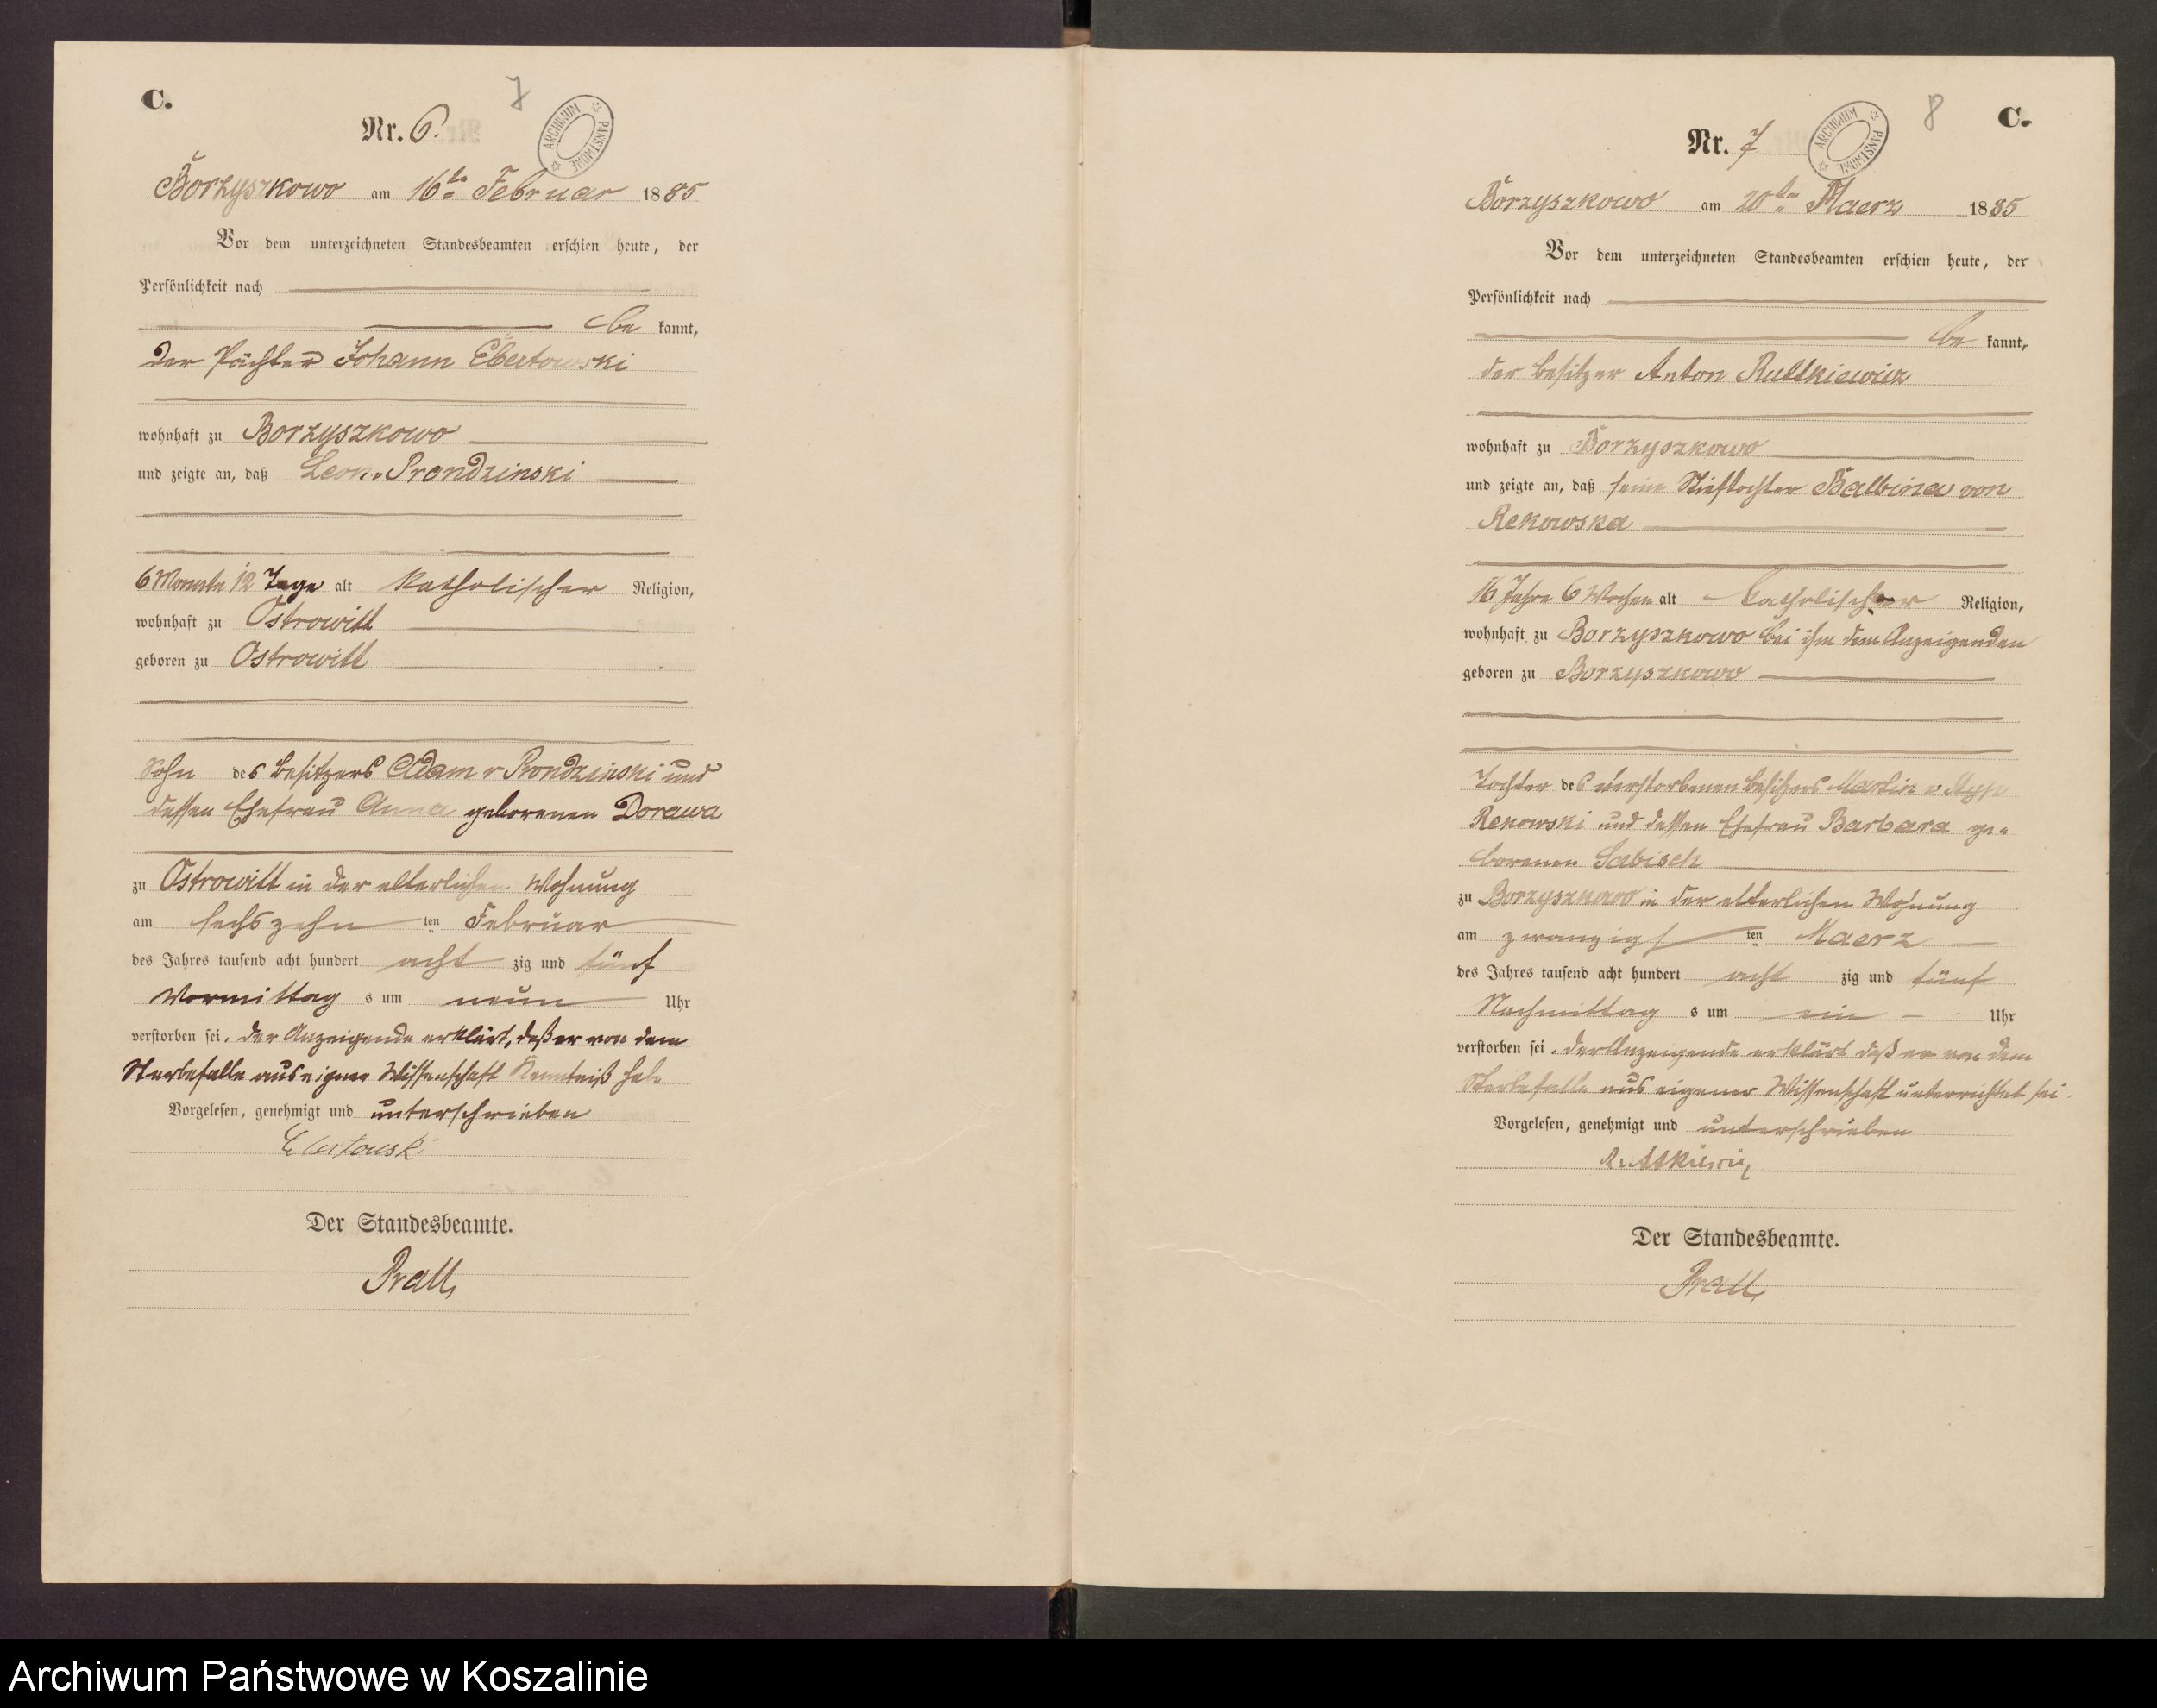 C.
7
Nr. 6.
ARCHIWUM PAŃSTWOWE
Borzyszkowo am 16ten Februar 1885
Vor dem unterzeichneten Standesbeamten erschien heute, der
Persönlichkeit nach
be kannt,
der Pächter Johann Ebertowski
wohnhaft zu Borzyszkowo
und zeigte an, daß Leon v Prondzinski
6 Monate 12 Tage alt katholischer Religion,
wohnhaft zu Ostrowitt
geboren zu Ostrowitt
Sohn des Besitzers Adam v Prondzinski und
dessen Ehefrau Anna geborenen Dorawa
zu Ostrowitt in der elterlichen Wohnung
am sechszehn ten Februar
des Jahres tausend acht hundert acht zig und fünf
Vormittag s um neun Uhr
verstorben sei. Der Anzeigende erklärt, daß er von dem
Sterbefalle aus eigner Wissenschaft Kenntniß habe
Vorgelesen, genehmigt und unterschrieben
Ebertowski
Der Standesbeamte.
Prall
8
C.
Nr. 7
ARCHIWUM PAŃSTWOWE
Borzyszkowo am 20ten Maerz 1885
Vor dem unterzeichneten Standesbeamten erschien heute, der
Persönlichkeit nach
be kannt,
der Besitzer Anton Ruttkiewicz
wohnhaft zu Borzyszkowo
und zeigte an, daß seine Stieftochter Balbina von
Rekowska
16 Jahre 6 Wochen alt katholischer Religion,
wohnhaft zu Borzyszkowo bei ihm dem Anzeigenden
geboren zu Borzyszkowo
Tochter des verstorbenen Besitzers Martin v Styp
Rekowski und dessen Ehefrau Barbara ge=
borenen Sabisch
zu Borzyszkowo in der elterlichen Wohnung
am zwanzigs ten Maerz
des Jahres tausend acht hundert acht zig und fünf
Nachmittag s um ein Uhr
verstorben sei. Der Anzeigende erklärt daß er von dem
Sterbefalle aus eigener Wissenschaft unterrichtet sei.
Vorgelesen, genehmigt und unterschrieben
Ruttkiewicz
Der Standesbeamte.
Prall
Archiwum Państwowe w Koszalinie